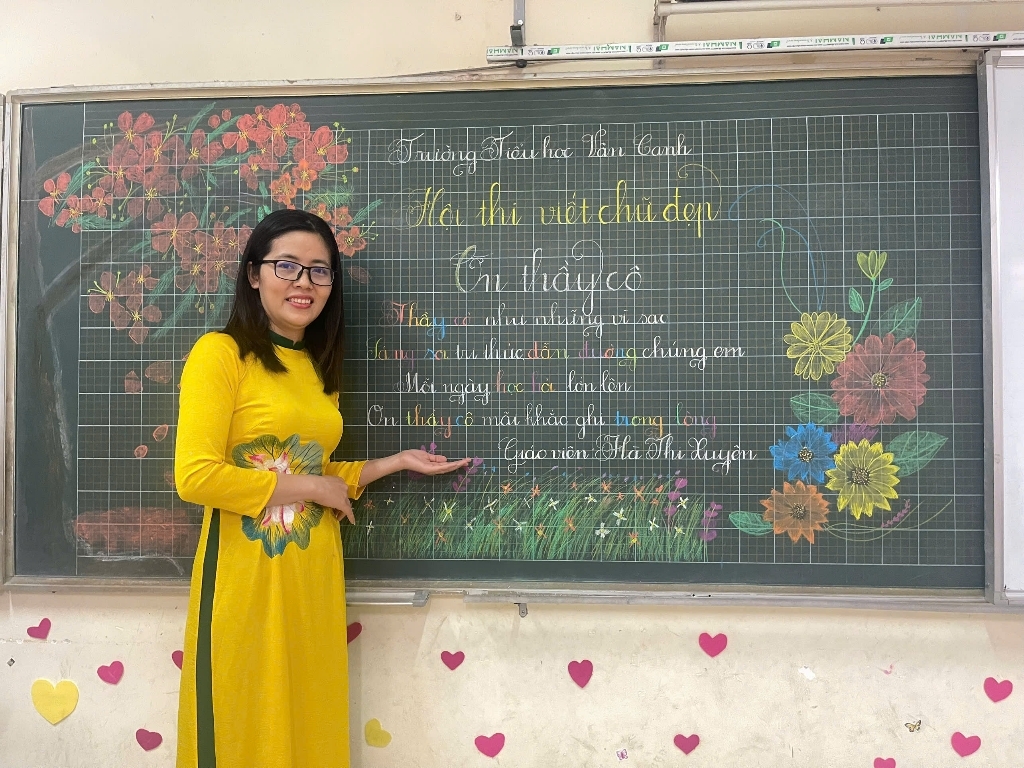 Trường Tiểu học Vân Canh
Hội thi viết chữ đẹp
Ơn thầy cô
Thầy cô như những vì sao
Sáng soi tri thức dẫn đường chúng em
Mỗi ngày học hỏi lớn lên
Ơn thầy cô mãi khắc ghi trong lòng
Giáo viên Hà Thị Xuyên